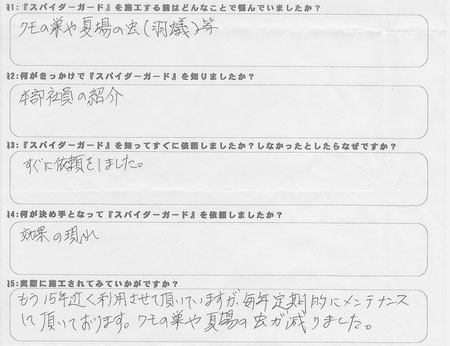 11:『スパイダーガード』を施工する前はどんなことで悩んでいましたか?
クモの巣や夏場の虫(羽蟻)等
12:何がきっかけで『スパイダーガード』を知りましたか?
本部社員の紹介
13:『スパイダーガード』を知ってすぐに依頼しましたか?しなかったとしたらなぜですか?
すぐに依頼をしました。
14:何が決め手となって『スパイダーガード』を依頼しましたか?
効果の現れ
15:実際に施工されてみていかがですか?
もう15年近く利用させて頂いていますが、毎年定期的にメンテナンス
して頂いております。クモの巣や夏場の虫が減りました。